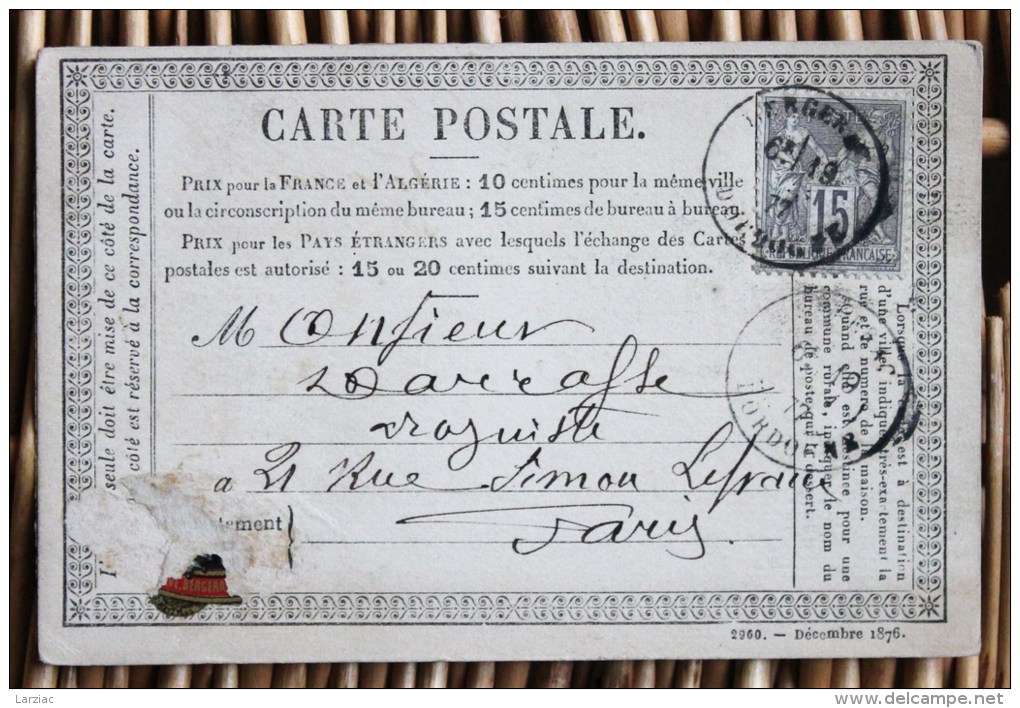 CARTE POSTALE.
PRIX pour la FRANCE et l'ALGÉRIE : 10 centimes pour la même ville
ou la circonscription du même bureau ; 15 centimes de bureau à bureau.
PRIX pour les PAYS ÉTRANGERS avec lesquels l'échange des Cartes
postales est autorisé : 15 ou 20 centimes suivant la destination.
Monsieur
Darrasse
droguiste
à 21 Rue Simon Lefranc
Paris.
tement
seule doit être mise de ce côté de la carte.
côté est réservé à la correspondance.
15
REPUBLIQUE FRANCAISE
BERGERAC
19
77
DORDOGNE
DORDOGNE
Lorsque la carte est à destination
d'une ville, indiquer très-exactement la
rue et le numéro de la maison.
Quand elle est destinée pour une
commune rurale, indiquer le nom du
bureau de poste qui la dessert.
BERGERA
2960. — Décembre 1876.
Larziac
delcampe.net